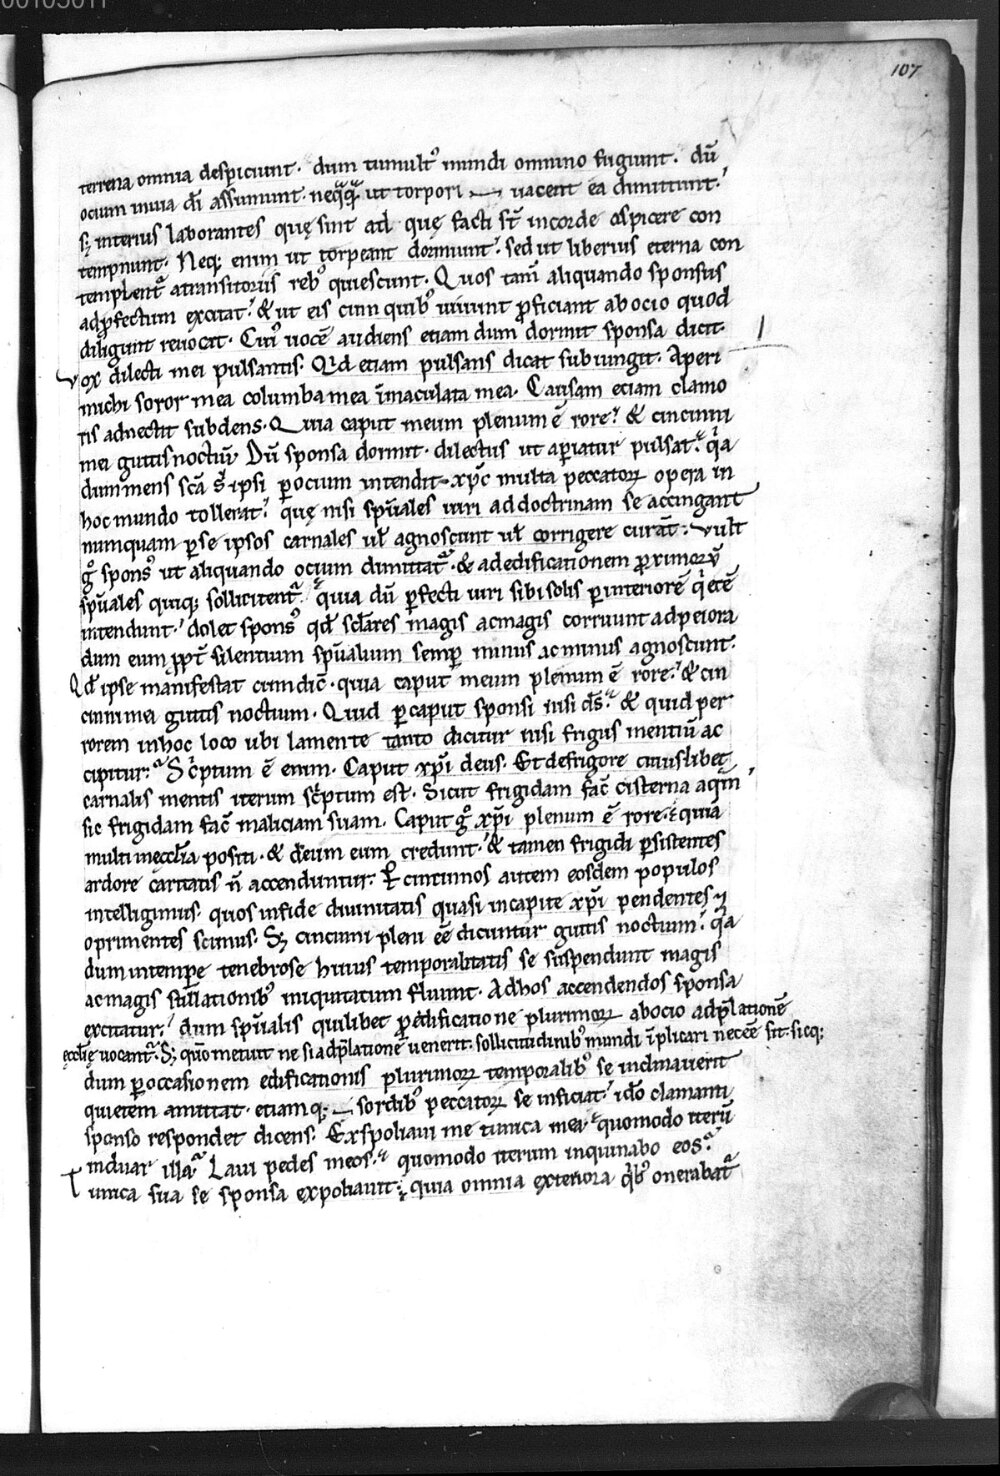 00105011
107
terrena omnia despiciunt. dum tumultꝰ mundi omnino fugiunt. dū
ocium inuia dī assumunt. neq̄q̄ ut torpori vacent ea dimittunt.
sꝫ interius laborantes quę sint ad quę facti st̄ incorde aspicere con
tempnunt. Neqꝫ enim ut torpeant dormiunt. sed ut liberius eterna con
templent᷑ atransitoriis rebꝰ quiescunt. Quos tam̄ aliquando sponsus
adꝓfectum excitat. & ut eis cum quibꝰ uiuunt ꝓficiant abocio quod
diligunt reuocat. Cuiꝰ uocē audiens etiam dum dormit sponsa dicit.
Vox dilecti mei pulsantis. Qid etiam pulsans dicat subiungit. Aperi
michi soror mea columba mea īmaculata mea. Causam etiam clamo
ris adnectit subdens. Quia caput meum plenum ē rore. & cincinni
mei guttis noctiū. Dū sponsa dormit. dilectus ut aꝑiatur pulsat. q̄a
dum mens scā sꝰ ipsi ꝑ ocium intendit. xp̄c multa peccatoꝝ opera in
hoc mundo tollerat. quę nisi sp̄uales uiri addoctrinam se accingant
numquam ꝑse ipsos carnales ul̄ agnoscunt ul̄ corrigere curāt. Vult
gͦ sponsꝰ ut aliquando ocium dimittat᷑. & adedificationem ꝓximoꝝ
sp̄uales quiqꝫ sollicitent᷑. quia dū ꝑfecti uiri sibi solis ꝑ interiorē q̄etē
intendunt. dolet sponsꝰ qd̄ sclāres magis acmagis corruunt adpeiora
dum eum ꝓpt̄ silentium sp̄ualium semꝑ minus acminus agnoscunt.
Qd̄ ipse manifestat cum dic̄. quia caput meum plenum ē rore. & cin
cinni mei guttis noctium. Quid ꝑ caput sponsi nisi ds̄. & quid per
rorem inhoc loco ubi lamente tanto dicitur nisi frigus mentiū ac
cipitur. Scͥptum ē enim. Caput xp̄i deus. Et defrigore cuiuslibet
carnalis mentis iterum scͥptum est. Sicut frigidam fac̄ cisterna aq̄m
sic frigidam fac̄ maliciam suam. Caput gͦ xp̄i plenum ē rore. quia
multi inęcclia positi. & deum eum credunt. & tamen frigidi ꝑsistentes
ardore caritatis n̄ accenduntur. Per cincinnos autem eosdem populos
intelligimus. quos infide diuinitatis quasi incapite xp̄i pendentes ⁊
oprimentes scimus. Sꝫ cincinni pleni eē dicuntur guttis noctium. q̄a
dum intempe tenebrose huius temporalitatis se suspendunt magis
acmagis stillationibꝰ iniquitatum fluunt. Adhos accendendos sponsa
excitatur. dum sp̄ualis quilibet ꝓ edificatione plurimoꝝ abocio adp̄lationē
ęcclię uocant᷑. Sꝫ quōmetuit ne si adp̄lationē uenerit. sollicitudinibꝰ mundi īplicari necēē sit. sicqꝫ
dum ꝑ occasionem edificationis plurimoꝝ temporalibꝰ se inclinauerit
quietem amittat. etiamqꝫ sordibꝰ peccatoꝝ se inficiat. idō clamanti
sponso respondet dicens. Exspoliaui me tunica mea quomodo iterū
induar illa. Laui pedes meos. quomodo iterum inquinabo eos.
Tunica sua se sponsa expoliauit. quia omnia exteriora qͥbꝰ onerabat᷑